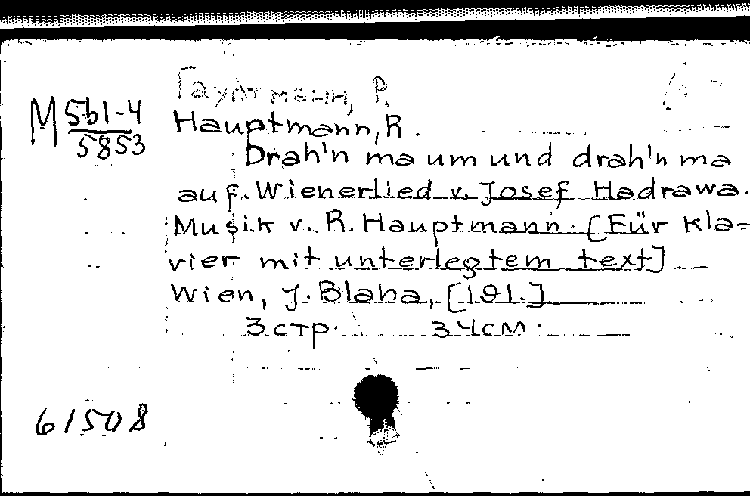 Гауптманн, Р.
М 5b1-4
5853
Hauptmann, R.
Drah'n ma um und drah'n ma
auf. Wienerlied v. Josef Hadrawa.
Musik v. R. Hauptmann. [Für Kla=
vier mit unterlegtem text]
Wien, J. Blaha, [191.]
3 стр. 34 см.
61508